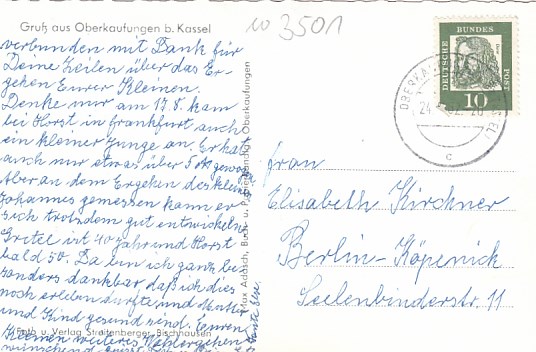 Gruß aus Oberkaufungen b. Kassel
W 3501
verbunden mit Dank für
Deine Zeilen über das Er-
gehen Eurer Kleinen.
Denke nur am 17.8. kam
bei Horst in Frankfurt auch
ein kleiner Junge an. Er hat
auch nur etwas über 5 gewogen
Aber an dem Ergehen des kleinen
Johannes gemessen kann er
sich trotzdem gut entwickeln
Gretel ist 40 Jahr und Horst
bald 50. Da bin ich ganz be-
sonders dankbar, daß ich dies
noch erleben durfte und Mutter
und Kind gesund sind. Euren
Kleinen weiteres Wohlergehen
wünschend
Foto u. Verlag Straitenberger, Bischhausen
Max Adasch, Buch- u. Oberkaufungen
DEUTSCHE BUNDESPOST
10
OBERKA
24
c
Frau
Elisabeth Kirchner
Berlin-Köpenick
Seelenbinderstr. 11